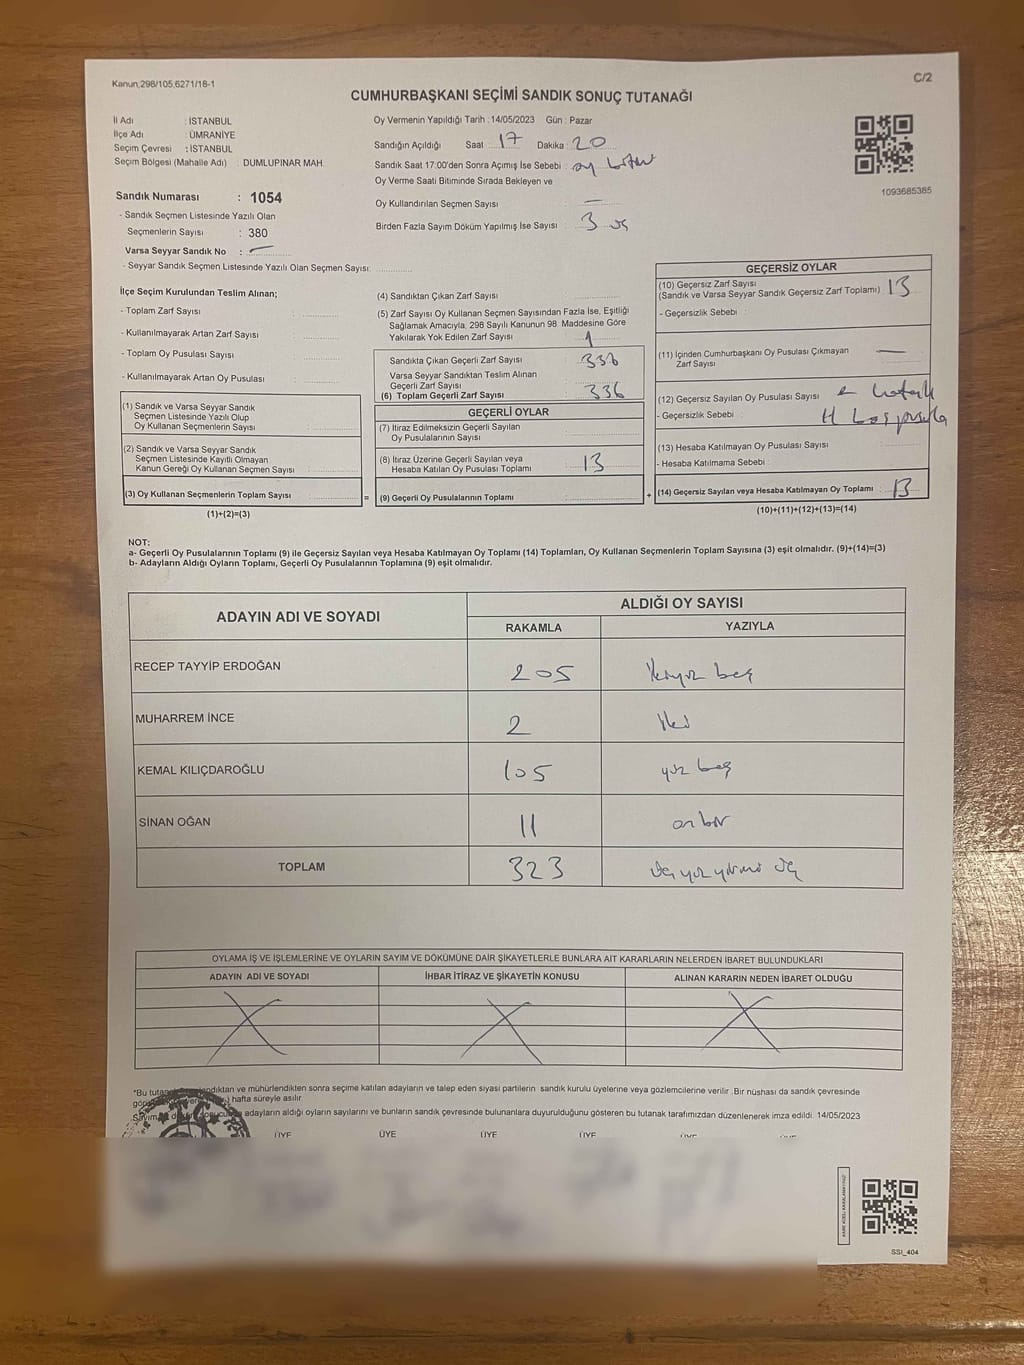 Kanun,298/105,6271/18-1
C/2
CUMHURBAŞKANI SEÇİMİ SANDIK SONUÇ TUTANAĞI
İl Adı : İSTANBUL
İlçe Adı : ÜMRANİYE
Seçim Çevresi : İSTANBUL
Seçim Bölgesi (Mahalle Adı) : DUMLUPINAR MAH.
Sandık Numarası : 1054
- Sandık Seçmen Listesinde Yazılı Olan
Seçmenlerin Sayısı : 380
Varsa Seyyar Sandık No : —
- Seyyar Sandık Seçmen Listesinde Yazılı Olan Seçmen Sayısı:
Oy Vermenin Yapıldığı Tarih : 14/05/2023 Gün : Pazar
Sandığın Açıldığı Saat 17 Dakika : 20
Sandık Saat 17:00'den Sonra Açımış İse Sebebi : oy
Oy Verme Saati Bitiminde Sırada Bekleyen ve
Oy Kullandırılan Seçmen Sayısı : —
Birden Fazla Sayım Döküm Yapılmış İse Sayısı : 3 üç
1093685385
İlçe Seçim Kurulundan Teslim Alınan;
- Toplam Zarf Sayısı :
- Kullanılmayarak Artan Zarf Sayısı :
- Toplam Oy Pusulası Sayısı :
- Kullanılmayarak Artan Oy Pusulası :
(1) Sandık ve Varsa Seyyar Sandık
Seçmen Listesinde Yazılı Olup
Oy Kullanan Seçmenlerin Sayısı :
(2) Sandık ve Varsa Seyyar Sandık
Seçmen Listesinde Kayıtlı Olmayan
Kanun Gereği Oy Kullanan Seçmen Sayısı :
(3) Oy Kullanan Seçmenlerin Toplam Sayısı :
=
(1)+(2)=(3)
(4) Sandıktan Çıkan Zarf Sayısı :
(5) Zarf Sayısı Oy Kullanan Seçmen Sayısından Fazla İse, Eşitliği
Sağlamak Amacıyla, 298 Sayılı Kanunun 98. Maddesine Göre
Yakılarak Yok Edilen Zarf Sayısı : 1
Sandıkta Çıkan Geçerli Zarf Sayısı : 336
Varsa Seyyar Sandıktan Teslim Alınan
Geçerli Zarf Sayısı :
(6) Toplam Geçerli Zarf Sayısı : 336
GEÇERLİ OYLAR
(7) İtiraz Edilmeksizin Geçerli Sayılan
Oy Pusulalarının Sayısı :
(8) İtiraz Üzerine Geçerli Sayılan veya
Hesaba Katılan Oy Pusulası Toplamı : 13
(9) Geçerli Oy Pusulalarının Toplamı :
+
GEÇERSİZ OYLAR
(10) Geçersiz Zarf Sayısı
(Sandık ve Varsa Seyyar Sandık Geçersiz Zarf Toplamı) : 13
- Geçersizlik Sebebi :
(11) İçinden Cumhurbaşkanı Oy Pusulası Çıkmayan
Zarf Sayısı : —
(12) Geçersiz Sayılan Oy Pusulası Sayısı : 2 hatalı
- Geçersizlik Sebebi : 11 boş pusula
(13) Hesaba Katılmayan Oy Pusulası Sayısı :
- Hesaba Katılmama Sebebi :
(14) Geçersiz Sayılan veya Hesaba Katılmayan Oy Toplamı : 13
(10)+(11)+(12)+(13)=(14)
NOT:
a- Geçerli Oy Pusulalarının Toplamı (9) ile Geçersiz Sayılan veya Hesaba Katılmayan Oy Toplamı (14) Toplamları, Oy Kullanan Seçmenlerin Toplam Sayısına (3) eşit olmalıdır. (9)+(14)=(3)
b- Adayların Aldığı Oyların Toplamı, Geçerli Oy Pusulalarının Toplamına (9) eşit olmalıdır.
ADAYIN ADI VE SOYADI
ALDIĞI OY SAYISI
RAKAMLA YAZIYLA
RECEP TAYYİP ERDOĞAN 205 ikiyüz beş
MUHARREM İNCE 2 iki
KEMAL KILIÇDAROĞLU 105 yüz beş
SİNAN OĞAN 11 on bir
TOPLAM 323 üç yüz yirmi üç
OYLAMA İŞ VE İŞLEMLERİNE VE OYLARIN SAYIM VE DÖKÜMÜNE DAİR ŞİKAYETLERLE BUNLARA AİT KARARLARIN NELERDEN İBARET BULUNDUKLARI
ADAYIN ADI VE SOYADI İHBAR İTİRAZ VE ŞİKAYETİN KONUSU ALINAN KARARIN NEDEN İBARET OLDUĞU
*Bu tutanak ve mühürlendikten sonra seçime katılan adayların ve talep eden siyasi partilerin sandık kurulu üyelerine veya gözlemcilerine verilir. Bir nüshası da sandık çevresinde
hafta süreyle asılır.
adayların aldığı oyların sayılarını ve bunların sandık çevresinde bulunanlara duyurulduğunu gösteren bu tutanak tarafımızdan düzenlenerek imza edildi. 14/05/2023
ÜYE ÜYE ÜYE ÜYE ÜYE ÜYE
SSİ_404